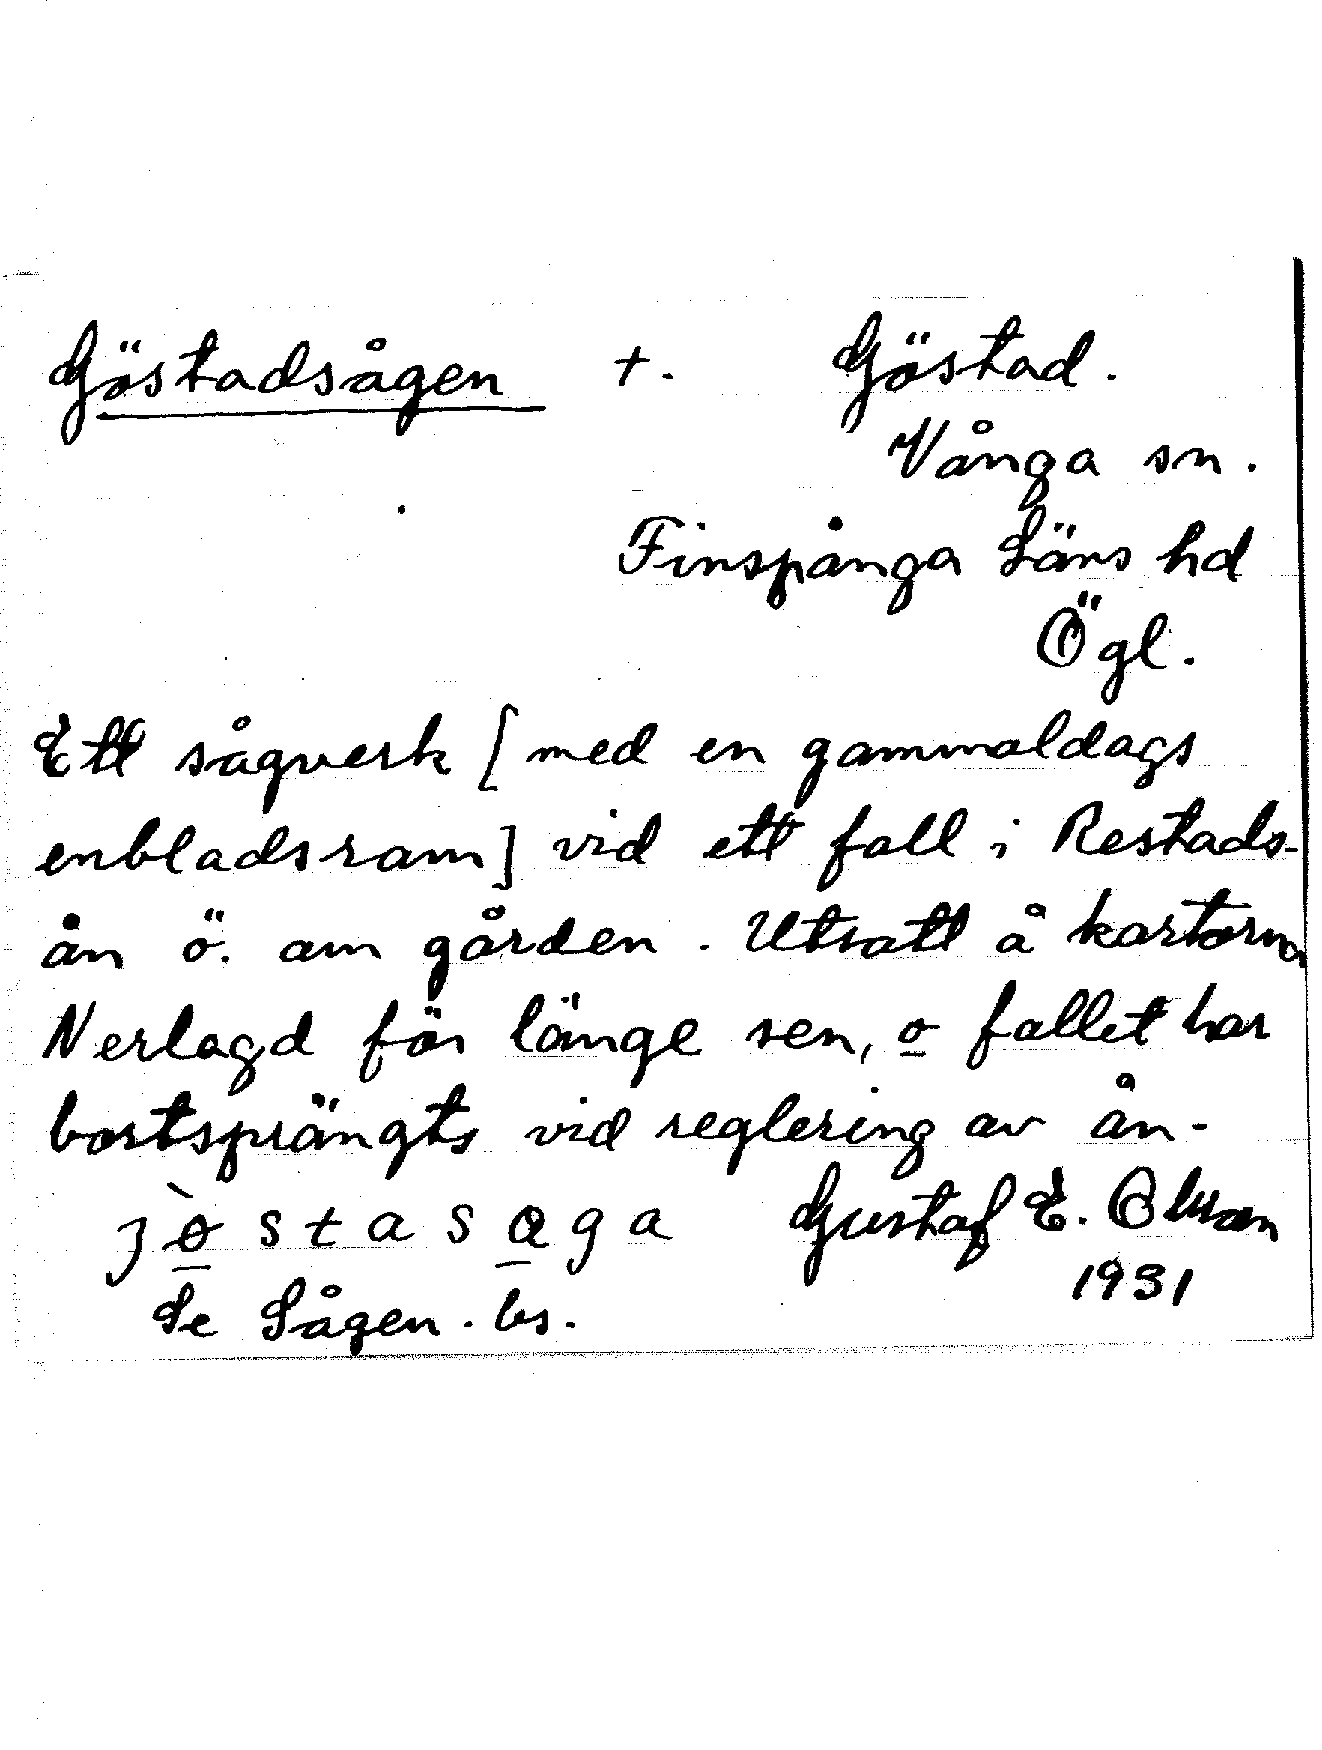 Göstadsågen +. Göstad.
Vånga sn.
Finspånga Läns hd
Ögl.
Ett sågverk [med en gammaldags
enbladsram] vid ett fall i Restads-
ån ö. om gården. Utsatt å kartorna
Nerlagd för länge sen, o fallet har
bortsprängts vid reglering av ån-
jòstasaga Gustaf E. Olsson
1931
Se Sågen. bs.